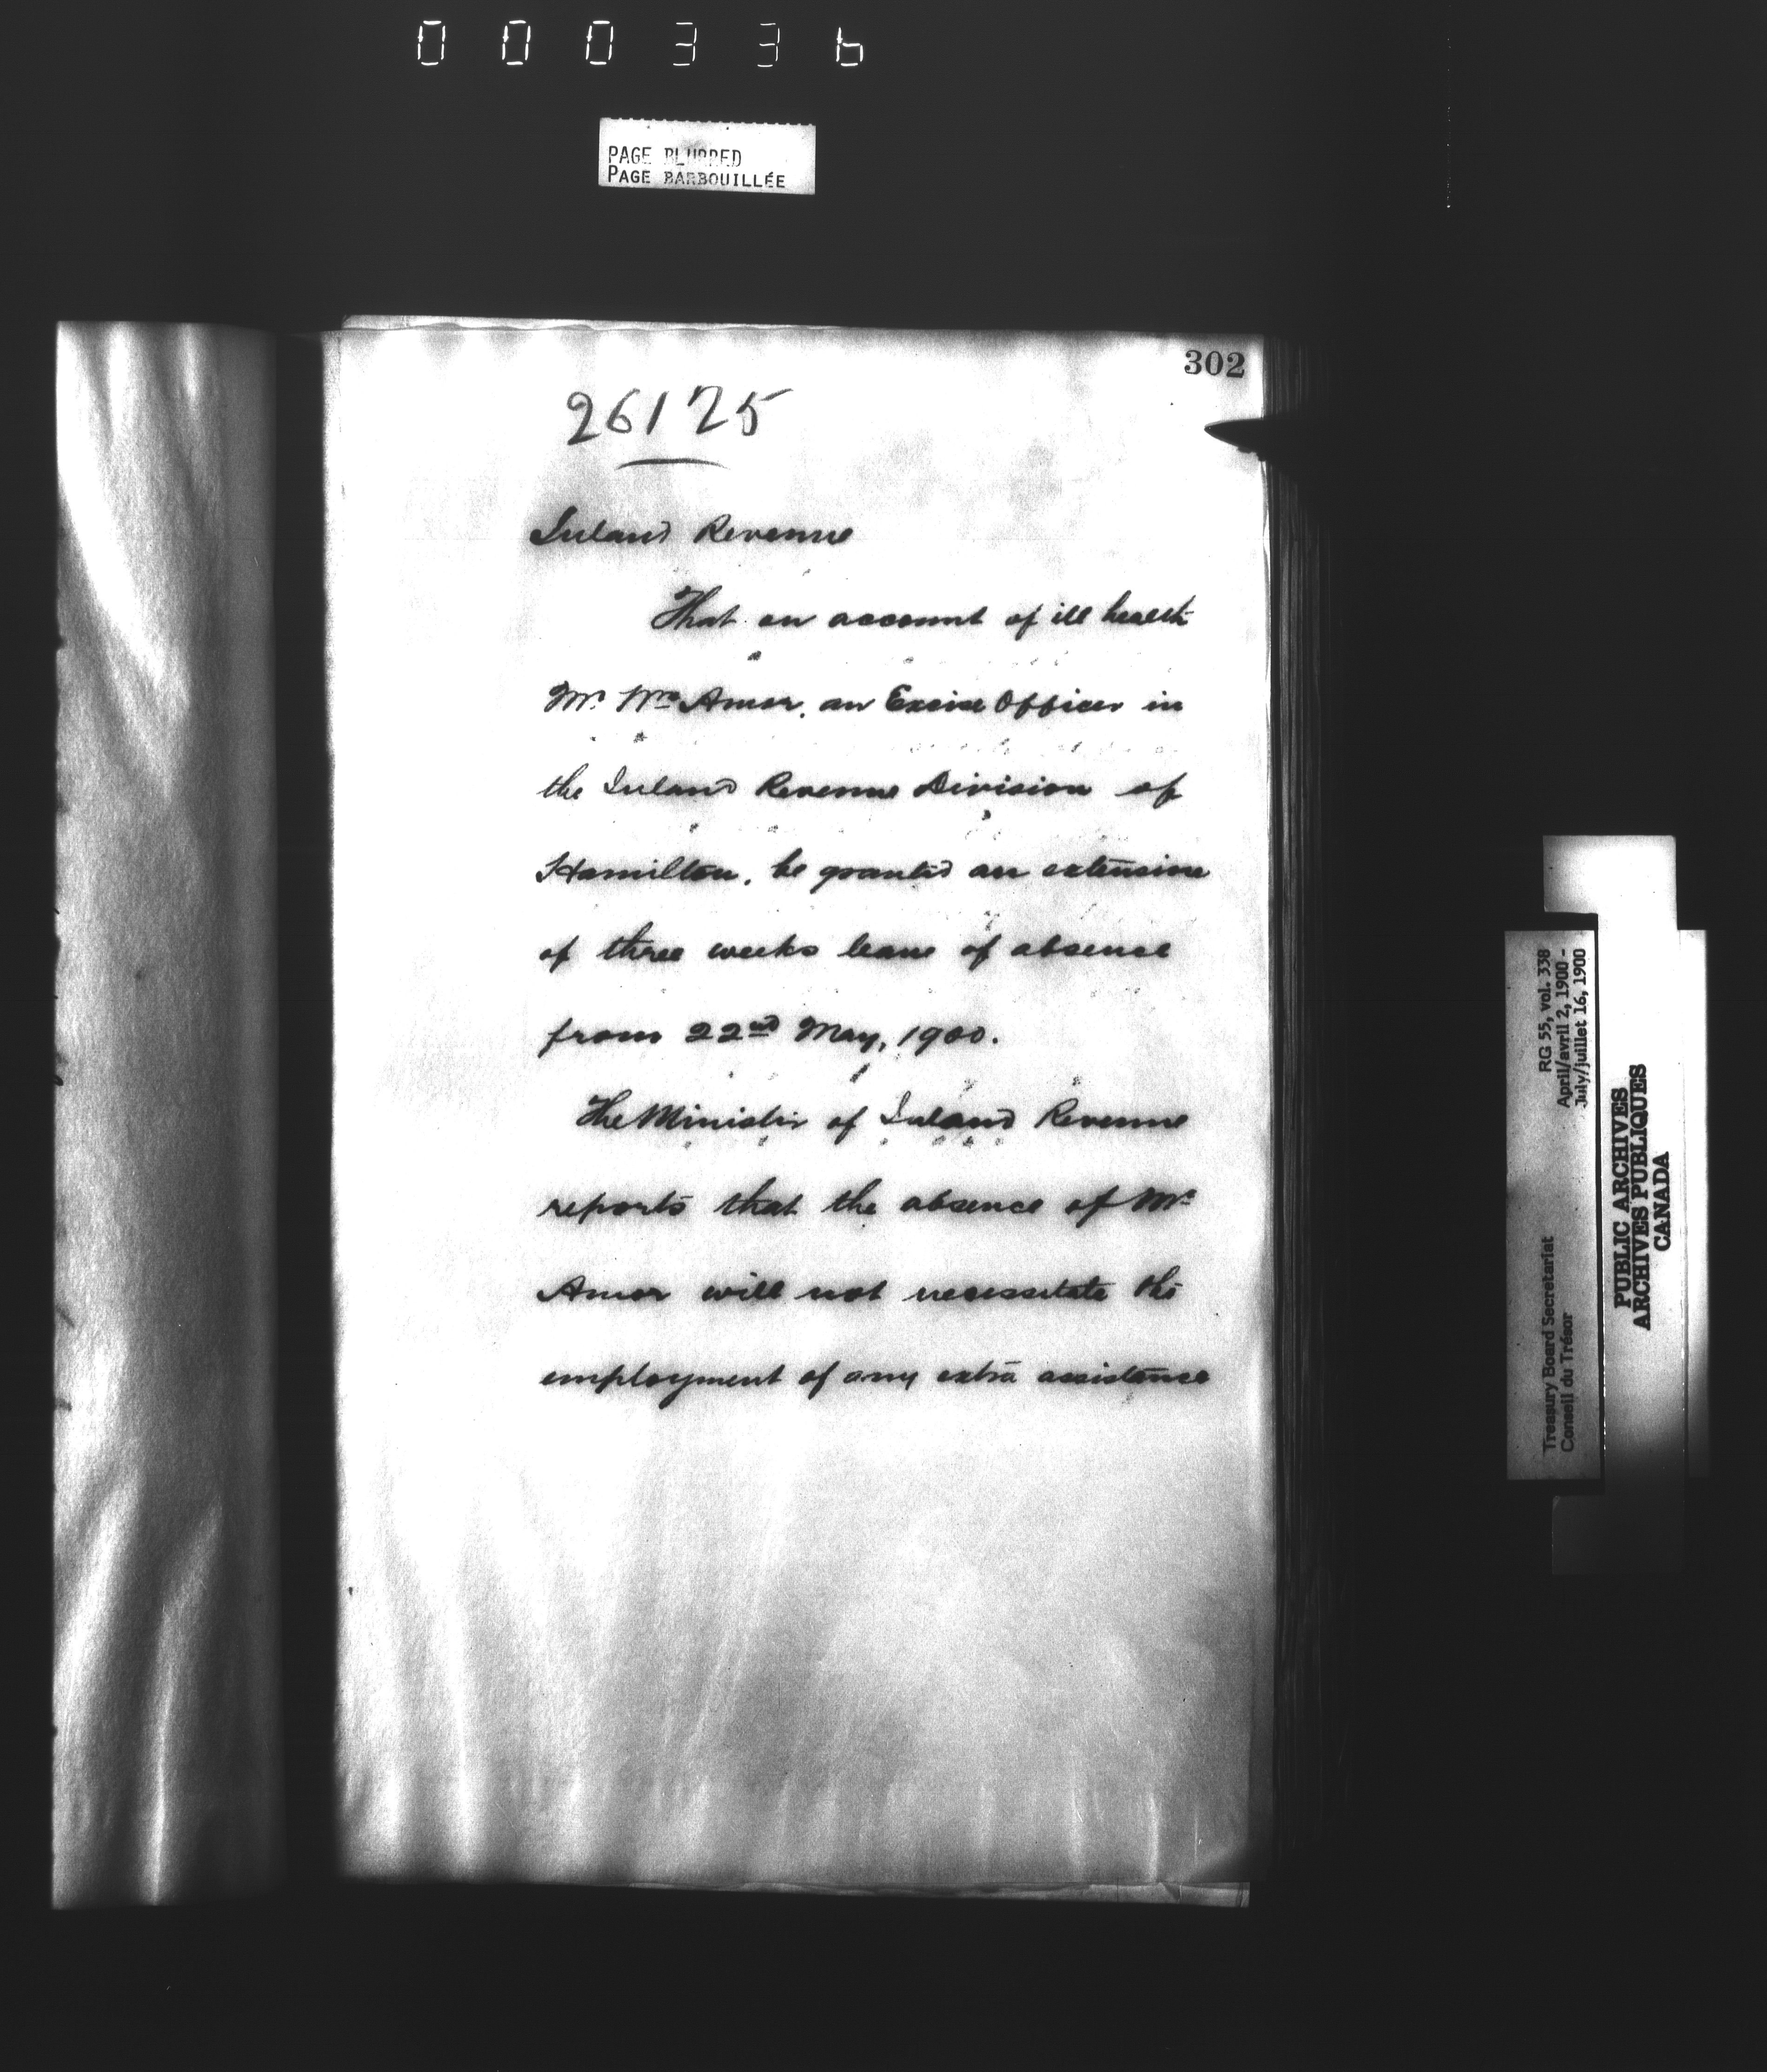 000336
PAGE BLURRED
PAGE BARBOUILLÉE
302
26125
Inland Revenue
That on account of ill health
Mr. Wm Amor, an Excise Officer in
the Inland Revenue Division of
Hamilton, be granted an extension
of three weeks leave of absence
from 22nd May, 1900.
The Minister of Inland Revenue
reports that the absence of Mr
Amor will not necessitate the
employment of any extra assistance
RG 55, vol. 338
April/avril 2, 1900 -
July/juillet 16, 1900
Treasury Board Secretariat
Conseil du Trésor
PUBLIC ARCHIVES
ARCHIVES PUBLIQUES
CANADA